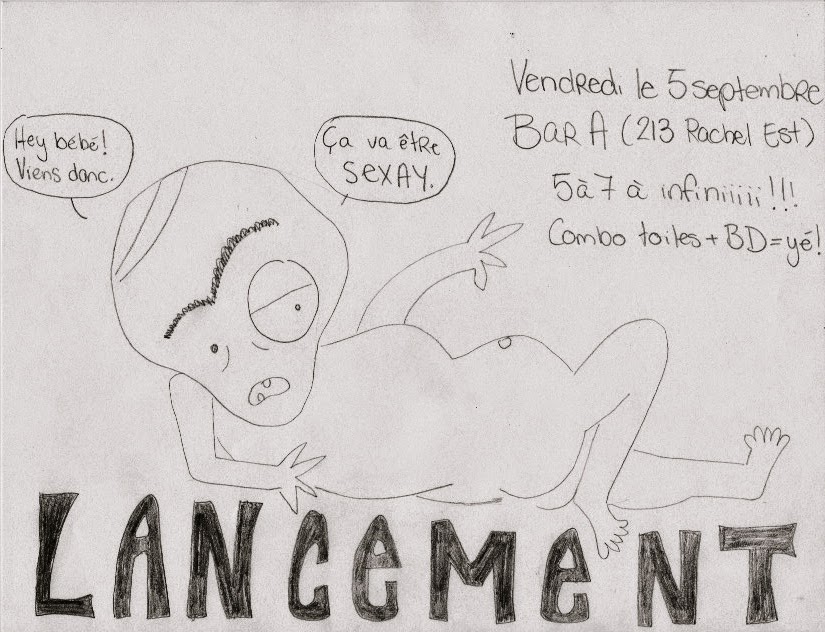 Vendredi le 5 septembre
Bar A (213 Rachel Est)
5à7 à infiniiiiii!!!
Combo toiles + BD = yé!
Hey bébé!
Viens donc.
Ça va être
SEXAY.
LANCEMENT